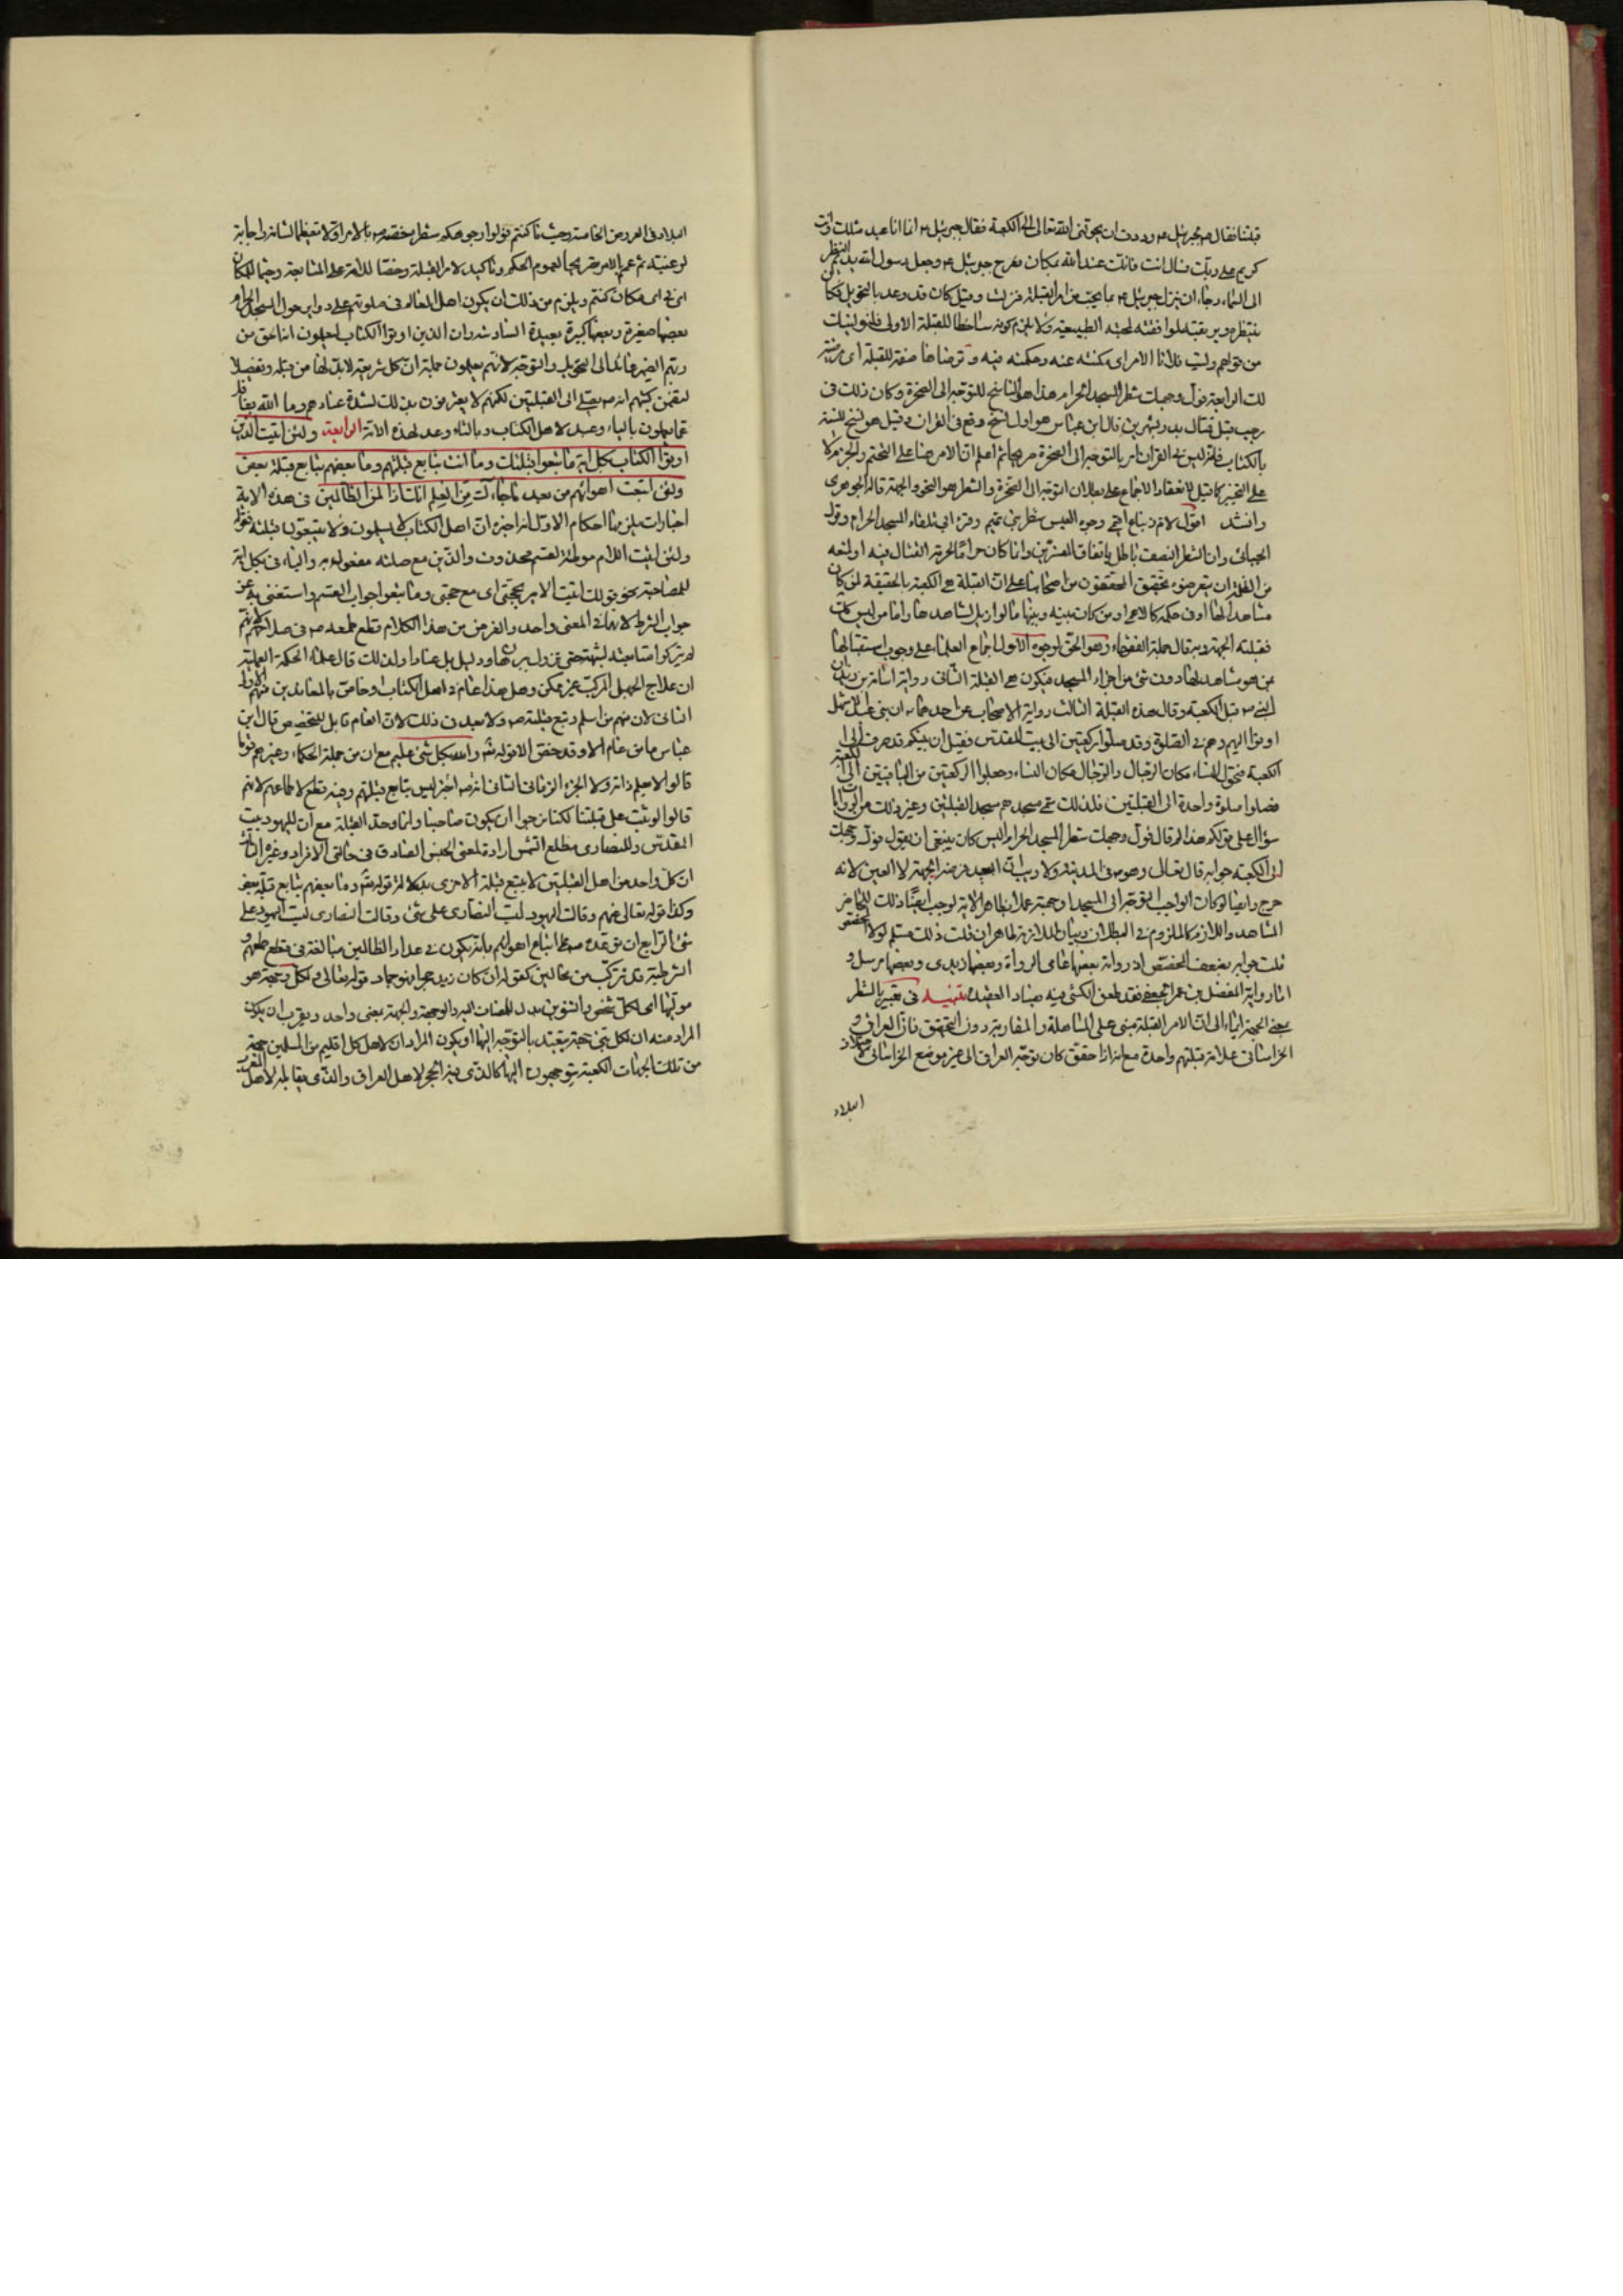 قبلتنا فقال ص لجبرئيل ع وددت ان يحولني الله تعالى الى الكعبة فقال جبرئيل ع انما انا عبد مثلك وانت
كريم على ربك فسال انت فانك عند الله بمكان فعرج جبرئيل ع وجعل رسول الله يديم النظر
الى السماء رجاء ان ينزل جبرئيل ع بما يحب من امر القبلة فنزلت وقيل كان قد وعد بالتحويل فكان
ينتظره ويرتقبه لموافقته لمحبته الطبيعية ولا يلزم كونه ساخطا للقبلة الاولى فلنولينك
من قولهم وليت فلانا الامر اى مكنته منه وحكمته فيه و ترضاها صفة للقبلة اى مرضية
لك الرابعة فول وجهك شطر المسجد الحرام هذا هو الناسخ للتوجه الى الصخرة وكان ذلك فى
رجب قبل قتال بدر بشهرين قال ابن عباس هو اول نسخ وقع فى القران وقيل هو نسخ للسنة
بالكتاب فانه ليس فى القران امر بالتوجه الى الصخرة صريحا ثم اعلم ان الامر هنا على التحتم والجزم لا
على التخيير كما قيل لانعقاد الاجماع على بطلان التوجه الى الصخرة والشطر هو النحو والجهة قاله الجوهرى
وانشد اقول لام زنباع اقيمى وجوه العيس شطر بنى تميم وقرء ابى تلقاء المسجد الحرام وقول
الجبائى وان الشطر النصف باطل باتفاق المفسرين وانما كان حراما لحرمة القتال فيه او لمنعه
من الظلمة ان يتعرضوه تحقيق المحققون من اصحابنا على ان القبلة هى الكعبة بالحقيقة لمن كان
مشاهدا لها او فى حكمه كالاعمى او من كان بينه وبينها ما لو ازيل لشاهدها واما من ليس كذلك
فقبلته الجهة وبه قال جملة الفقهاء وهو الحق لوجوه الاول اجماع العلماء على وجوب استقبالها
من هو مشاهد لها دون شئ من اجزاء المسجد فيكون هى القبلة الثانى رواية اسامة بن زيد ان
النبى ص قبل الكعبة وقال هذه القبلة الثالث رواية الاصحاب عن احدهما ع ان بنى عبد الاشهل
اوتوا اليهم وهم فى الصلوة وقد صلوا ركعتين الى بيت المقدس فقيل ان نبيكم قد صرف الى
الكعبة فتحول النساء مكان الرجال والرجال مكان النساء وجعلوا الركعتين من الباقيتين الى الكعبة
فصلوا صلوة واحدة الى القبلتين فلذلك سمى مسجدهم مسجد القبلتين وغير ذلك من الروايات
سؤال على قولكم هذا لم قال فول وجهك شطر المسجد الحرام اليس كان ينبغى ان يقول فول وجهك
الى الكعبة جوابه قال تعالى وهو ص فى المدينة ولا ريب ان البعيد فرضه الجهة لا العين لانه
حرج وايضا لو كان الواجب التوجه الى المسجد او جهته عملا بظاهر الاية لوجب ايضا ذلك للحاضر
المشاهد واللازم كالملزوم فى البطلان وبيان الملازمة ظاهر ان قلت ذلك مسلم لولا المخصص
قلت جوابه بضعف المخصص اذ رواته بعضها عامى الرواة وبعضها زيدى وبعضها مرسل و
اما رواية المفضل بن عمر الجعفى فقد طعن الكشى فيه بفساد العقيدة تنبيه فى تعبير بالشطر
بمعنى الجهة ايماء الى ان الامر القبلة مبنى على المساهلة والمقاربة دون التحقق فان العراقى و
الخراسانى علامة قبلتهم واحدة مع انه اذا حقق كان توجه العراقى الى غير موضع الخراسانى لاختلاف
البلاد
البلاد فى العرض الخامسة وحيث ما كنتم فولوا وجوهكم شطره خصه ص بالامر اولا تعظيما لشانه واجابة
لرغبته ثم عمم الامر تصريحا لعموم الحكم وتاكيد لامر القبلة وحضا للامة على المتابعة وحيثما للمكان
اى فى اى مكان كنتم ويلزم من ذلك ان يكون اهل العالم فى صلوتهم على دوائر حول المسجد الحرام
بعضها صغيرة وبعضها كبيرة بعيدة السادسة وان الذين اوتوا الكتاب ليعلمون انه الحق من
ربهم الضمير عائد الى التحويل والتوجه لانهم يعلمون جملة ان كل شريعة لا بد لها من قبلة وتفصيلا
لتضمن كتبهم انه ص يصلى الى القبلتين لكنهم لا يعترفون بذلك لشدة عنادهم وما الله بغافل
عما يعملون بالياء وعيد لاهل الكتاب وبالتاء وعد لهذه الامة الرابعة ولئن اتيت الذين
اوتوا الكتاب بكل اية ما تبعوا قبلتك وما انت بتابع قبلتهم وما بعضهم بتابع قبلة بعض
ولئن اتبعت اهوائهم من بعد ما جاءك من العلم انك اذا لمن الظالمين فى هذه الاية
اخبارات يلزمها احكام الاول انه اخبره ان اهل الكتاب لا يسلمون ولا يتبعون قبلته بقوله
ولئن اتيت اللام موطئة لقسم محذوف والذين مع صلته مفعول به والباء فى بكل اية
للمصاحبة نحو قولك اتيت الامير بحجتى اى مع حجتى وما تبعوا جواب القسم واستغنى به عن
جواب الشرط لانهما فى المعنى واحد والغرض من هذا الكلام قطع طمعه ص فى صلاحهم لانهم
لم يتركوا متابعته لشبهة حتى تزول ببرهان ودليل بل عنادا ولذلك قال علماء الحكمة العملية
ان علاج الجهل المركب غير ممكن وهل هذا عام فى اهل الكتاب او خاص بالمعاندين منهم الاولى
الثانى لان منهم من اسلم وتبع قبلته ص ولا بعد فى ذلك لان العام قابل للتخصيص قال ابن
عباس ما من عام الا وقد خص الا قوله تعالى والله بكل شئ عليم مع ان من جملة الحكماء وغيرهم قوما
قالوا لا يعلم ذاته ولا الجزء الزمانى الثانى انه ص اخبر ليس بتابع قبلتهم وفيه قطع لاطماعهم لانهم
قالوا لو ثبت على قبلتنا لكنا نرجوا ان يكون صاحبنا وانما وحد القبلة مع ان لليهود بيت
المقدس وللنصارى مطلع الشمس ارادة لمعنى الجنس الصادق فى حالتى الافراد وغيره الثالث
ان كل واحد من اهل القبلتين لا يتبع قبلة الاخرى بدلالة قوله تعالى وما بعضهم بتابع قبلة بعض
وكذا قوله تعالى عنهم وقالت اليهود ليست النصارى على شئ وقالت النصارى ليست اليهود على
شئ الرابع ان توعده ص على اتباع اهوائهم بانه يكون فى عداد الظالمين مبالغة فى قطع طمعهم و
الشرطية قد تتركب من محالين كقوله ان كان زيد حمارا فهو جماد قوله تعالى ولكل وجهة هو
موليها اى لكل شخص والتنوين بدل المضاف اليه والوجهة والجهة بمعنى واحد ويقرب ان يكون
المراد منه ان لكل نبى جهة يتعبد بالتوجه اليها او يكون المراد ان لاهل كل اقليم من المسلمين جهة
من تلك الجهات الكعبة يتوجهون اليها كالذى فيه الحجر لاهل العراق والذى يقابله لاهل المغرب